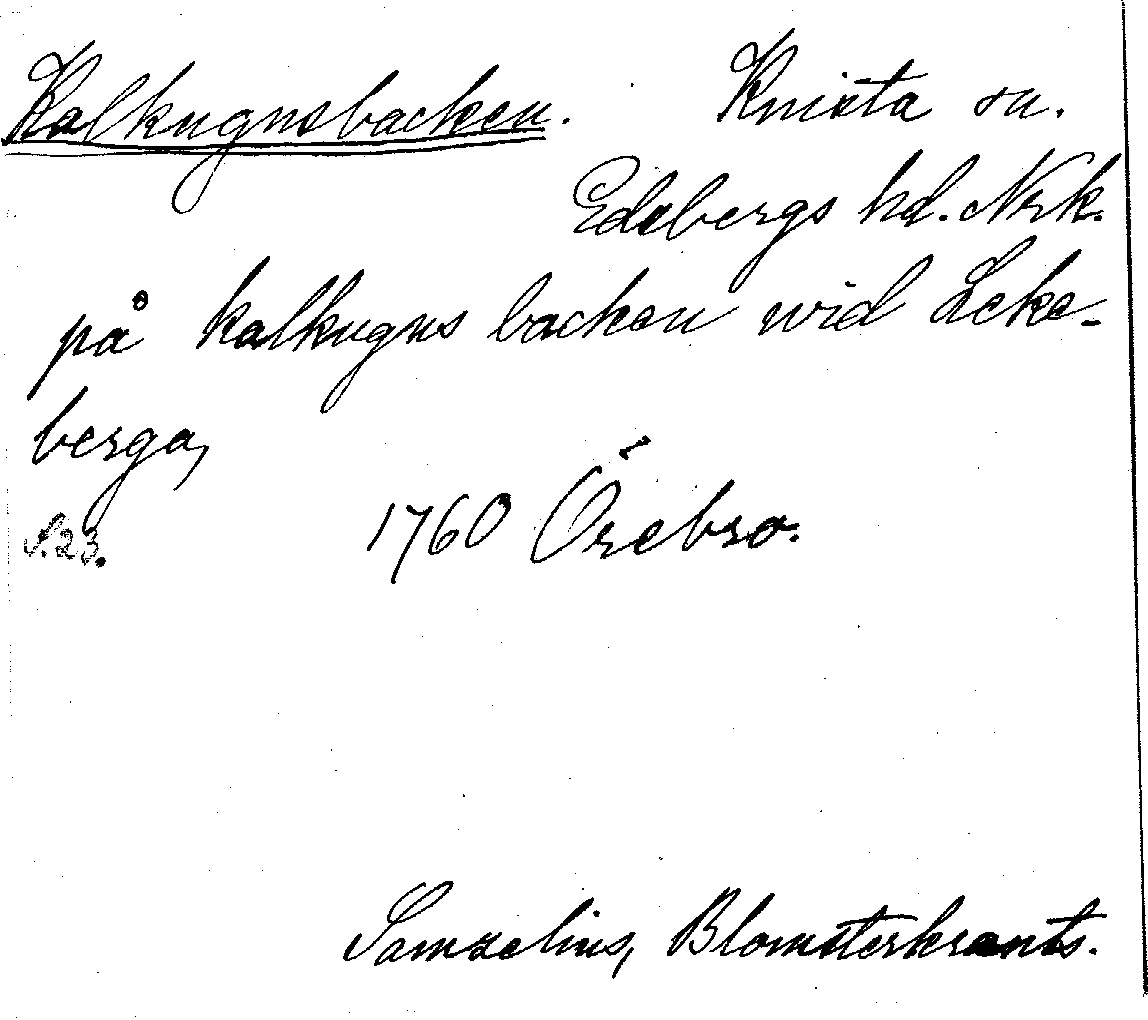 Kalkugnsbacken. Knista sn.
Edsbergs hd. Nrk.
på kalkugns backen wid Leke-
berga,
S. 23. 1760 Örebro.
Samzelius, Blomsterkrants.